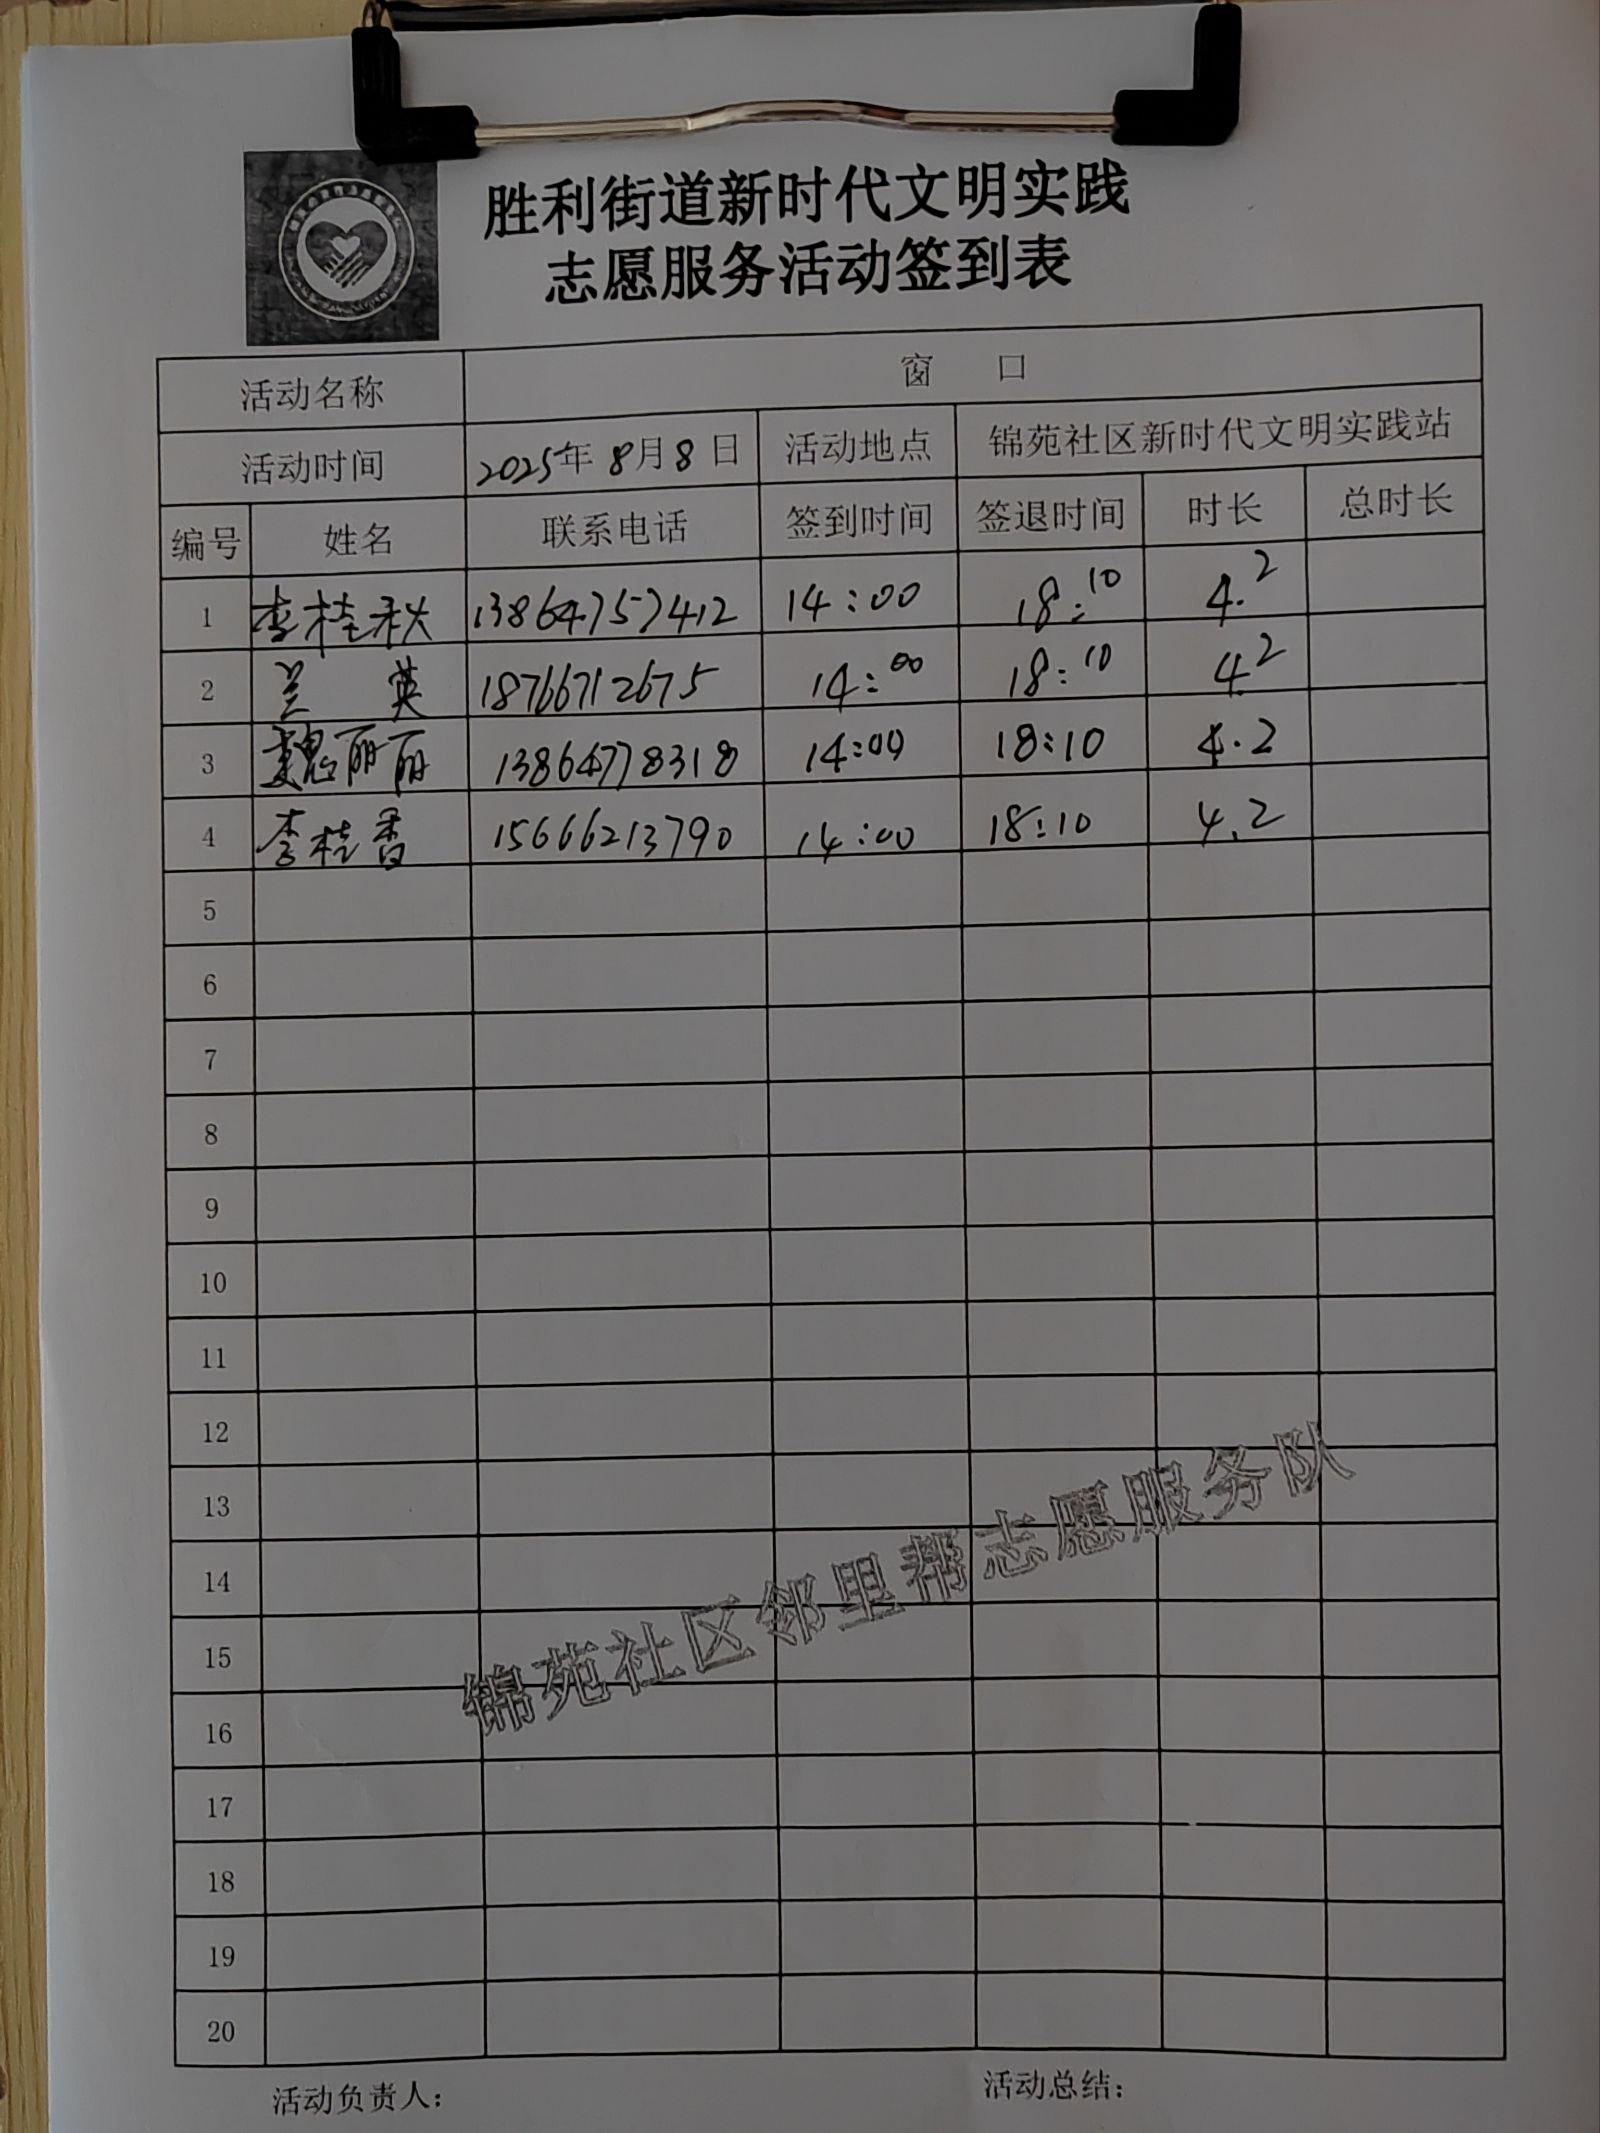 胜利街道新时代文明实践
志愿服务活动签到表
活动名称 窗 口
活动时间 2025年8月8日 活动地点 锦苑社区新时代文明实践站
编号 姓名 联系电话 签到时间 签退时间 时长 总时长
1 李桂秋 13864757412 14:00 18:10 4.2
2 兰 英 18766712675 14:00 18:10 4.2
3 魏丽丽 13864778318 14:00 18:10 4.2
4 李桂香 15666213790 14:00 18:10 4.2
5
6
7
8
9
10
11
12
13
14
15
16
17
18
19
20
锦苑社区邻里帮志愿服务队
活动负责人: 活动总结: